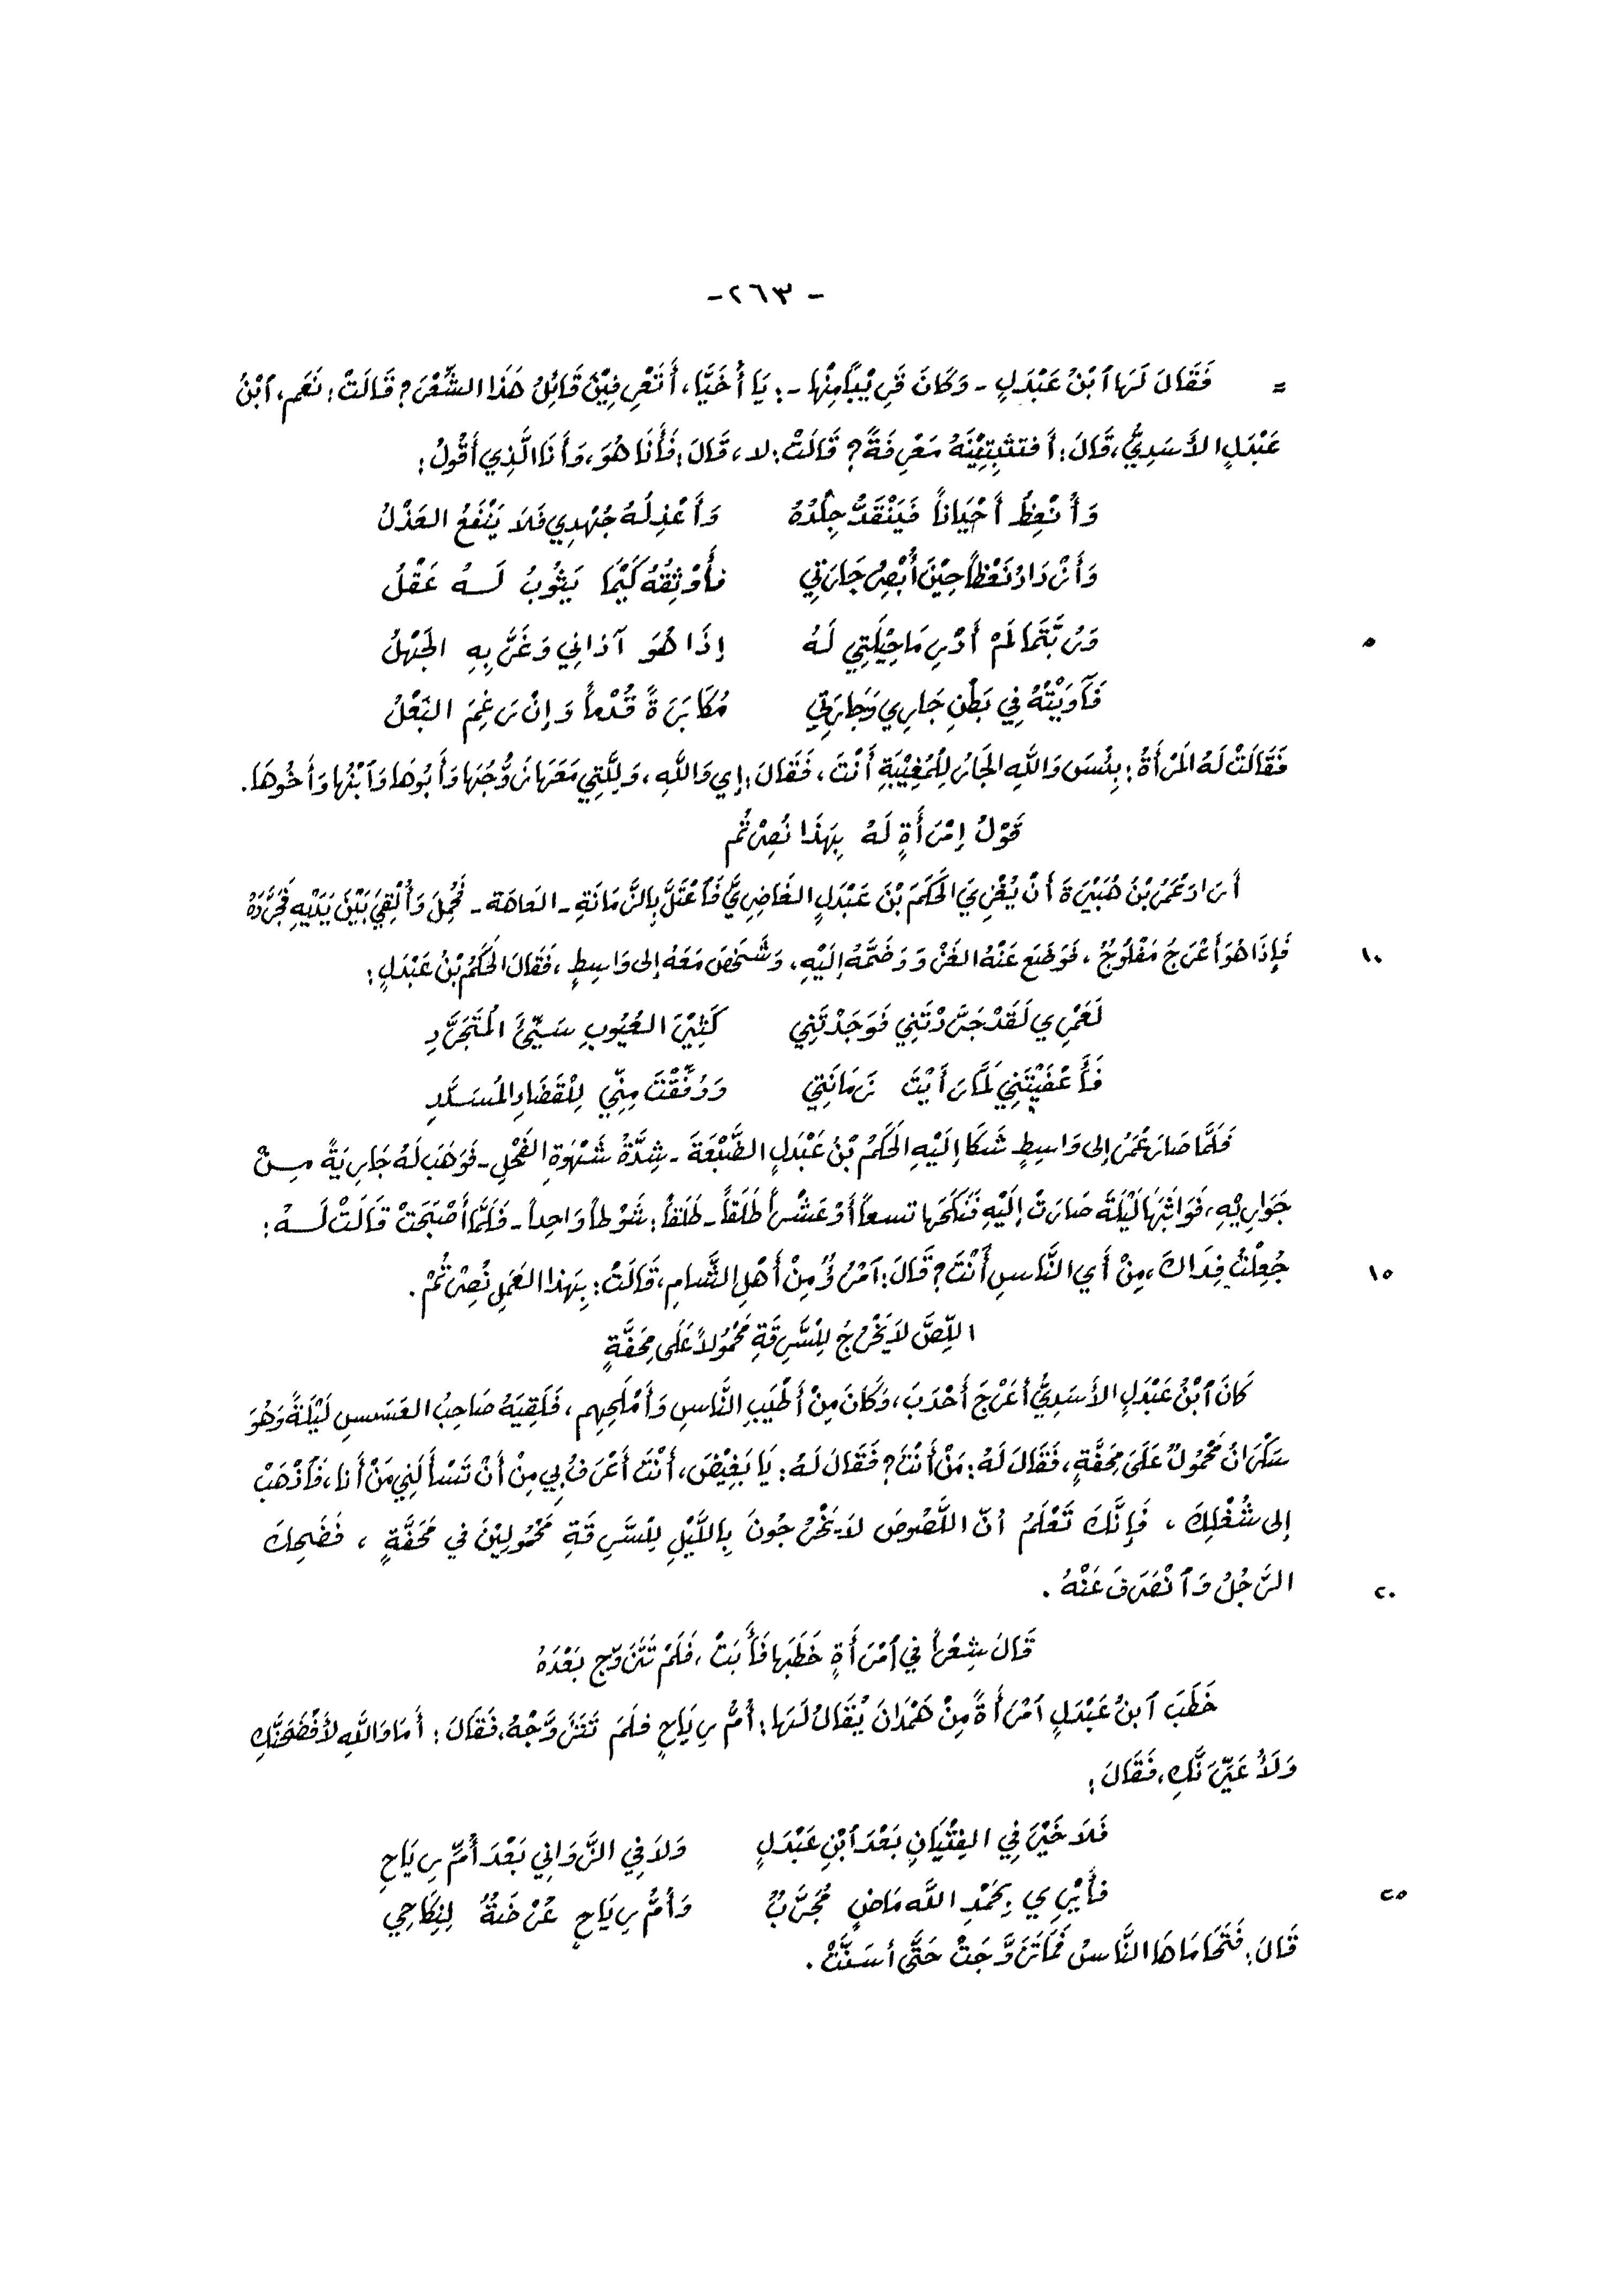 - ٢٦٣ -
= فَقَالَ لَهَا ٱبْنُ عَبْدَلٍ - وَكَانَ قَرِيْبًا مِنْهَا - : يَا أُخَيَّا، أَتَعْرِفِيْنَ قَائِلَ هَذَا الشِّعْرَ؟ قَالَتْ: نَعَم، ٱبْنُ
عَبْدَلٍ الأَسَدِيُّ، قَالَ: أَفتثْبِتِيْنَهُ مَعْرِفَةً؟ قَالَتْ: لا، قَالَ: فَأَنَا هُوَ، وَأَنَا الَّذِي أَقُولُ:
وَأُنْعِظُ أَحْيَاناً فَيَنْقَدُّ جِلْدُهُ وَأَعْذِلُهُ جُهْدِي فَلاَ يَنْفَعُ العَذْلُ
وَأَنْ دَادُ نَعْظاً حِيْنَ أُبْصِرُ جَارَتِي فأُوْثِقُهُ كَيْمَا يَثُوبُ لَهُ عَقْلُ
٥ وَرُبَّتَمَا لَمْ أَدْرِ مَا حِيْلَتِي لَهُ إِذَا هُوَ آذانِي وَغَرَّ بِهِ الجَهْلُ
فَآوَيْتُهُ فِي بَطْنِ جَارِي وَجَارَتِي مُكَابَرَةً قُدْماً وَإِنْ رَغِمَ البَعْلُ
فَقَالَتْ لَهُ المَرْأَةُ: بِئْسَ وَاللَّهِ الجَارُ لِلْمُغِيْبَةِ أَنْتَ، فَقَالَ: إِي وَاللَّهِ، وَلِلَّتِي مَعَهَا زَوْجُهَا وَأَبُوهَا وَٱبْنُها وَأَخُوهَا.
قَوْلُ إِمْرَأَةٍ لَهُ بِهَذَا نُصِرْتُم
أَرَادَ عُمَرُ بْنُ هُبَيْرَةَ أَنْ يُغْزِيَ الحَكَمَ بْنَ عَبْدَلٍ الغَاضِرِيَّ فَٱعْتَلَّ بِالزَّمَانَةِ - العَاهَة - فَحُمِلَ وَأُلْقِيَ بَيْنَ يَدَيْهِ فَجَرَّدَهُ
١٠ فَإِذَا هُوَ أَعْرَجُ مَفْلُوجٌ، فَوَضَعَ عَنْهُ الغَزْوَ وَضَمَّهُ إِلَيْهِ، وَشَخَصَ مَعَهُ إلى وَاسِطٍ، فَقَالَ الحَكَمُ بْنُ عَبْدَلٍ:
لَعَمْرِي لَقَدْ جَرَّدْتَنِي فَوَجَدْتَنِي كَثِيْرَ العُيُوبِ سَيِّئَ المُتَجَرَّدِ
فَأَعْفَيْتَنِي لَمَّا رَأَيْتَ زَمَانَتِي وَوُفِّقْتَ مِنِّي لِلْقَضَاءِ المُسَدَّدِ
فَلَمَّا صَارَ عُمَرُ إلى وَاسِطٍ شَكَا إِلَيْهِ الحَكَمُ بْنُ عَبْدَلٍ الضَّبْعَةَ - شِدَّةُ شَهْوَةِ الفَحْلِ - فَوَهَبَ لَهُ جَارِيَةً مِنْ
جَوَارِيْهِ، فَوَاثَبَهَا لَيْلَةَ صَارَتْ إِلَيْهِ فَنَكَحَها تسعاً أَوْ عَشْراً طَلَقاً - طَلَقاً: شَوْطاً وَاحِداً - فَلَمَّا أَصْبَحَتْ قَالَتْ لَهُ:
١٥ جُعِلْتُ فِدَاكَ، مِنْ أَيِ النَّاسِ أَنْتَ؟ قَالَ: ٱمْرُؤٌ مِنْ أَهْلِ الشَّامِ، قَالَتْ: بِهَذا العَمَلِ نُصِرْتُمْ.
اللِّصَّ لاَ يَخْرُجُ لِلسَّرِقَةِ مَحْمُولاً عَلَى مِحَفَّةٍ
كَانَ ٱبْنُ عَبْدَلٍ الأَسَدِيُّ أَعْرَجَ أَحْدَبَ، وَكَانَ مِنْ أَطْيَبِ النَّاسِ وَأَمْلَحِهِم، فَلَقِيَهُ صَاحِبُ العَسَسِ لَيْلَةً وَهُوَ
سَكْرَانُ مَحْمُولٌ عَلَى مِحَفَّةٍ، فَقَالَ لَهُ: مَنْ أَنْتَ؟ فَقَالَ لَهُ: يَا بَغِيْضَ، أَنْتَ أَعْرَفُ بِي مِنْ أَنْ تَسْأَلَنِي مَنْ أَنا، فَٱذْهَبْ
إلى شُغْلِكَ، فَإِنَّكَ تَعْلَمُ أنّ اللُّصُوصَ لاَ يَخْرُجُونَ بِاللَّيْلِ لِلسَّرِقَةِ مَحْمُولِيْنَ في مَحَفَّةٍ، فَضَحِكَ
٢٠ الرَّجُلُ وَٱنْصَرَفَ عَنْهُ.
قَالَ شِعْراً فِي ٱمْرَأَةٍ خَطَبَها فَأَبَتْ، فَلَمْ تَتَزَوَّج بَعْدَهُ
خَطَبَ ٱبنُ عَبْدَلٍ ٱمْرَأَةً مِنْ هَمْدَانَ يُقَالُ لَهَا: أُمُّ رِيَاحٍ فلَمَ تَتَزَوَّجْهُ، فَقَالَ: أَمَا وَاللَّهِ لأَفْضَحَنَّكِ
وَلَأُعَيِّرَنَّكِ، فَقَالَ:
فَلاَ خَيْرَ فِي الفِتْيَانِ بَعْدَ ٱبْنِ عَبْدَلٍ وَلاَ فِي الزَّوَانِي بَعْدَ أُمِّ رِيَاحِ
٢٥ فأَيْرِي بِحَمْدِ اللَّه مَاضٍ مُجَرَّبٌ وَأُمُّ رِيَاحٍ عُرْضَةٌ لِنِكَاحِي
قَالَ: فَتَحَامَاهَا النَّاسُ فَمَا تَزَوَّجَتْ حَتَّى أَسَنَّتْ.